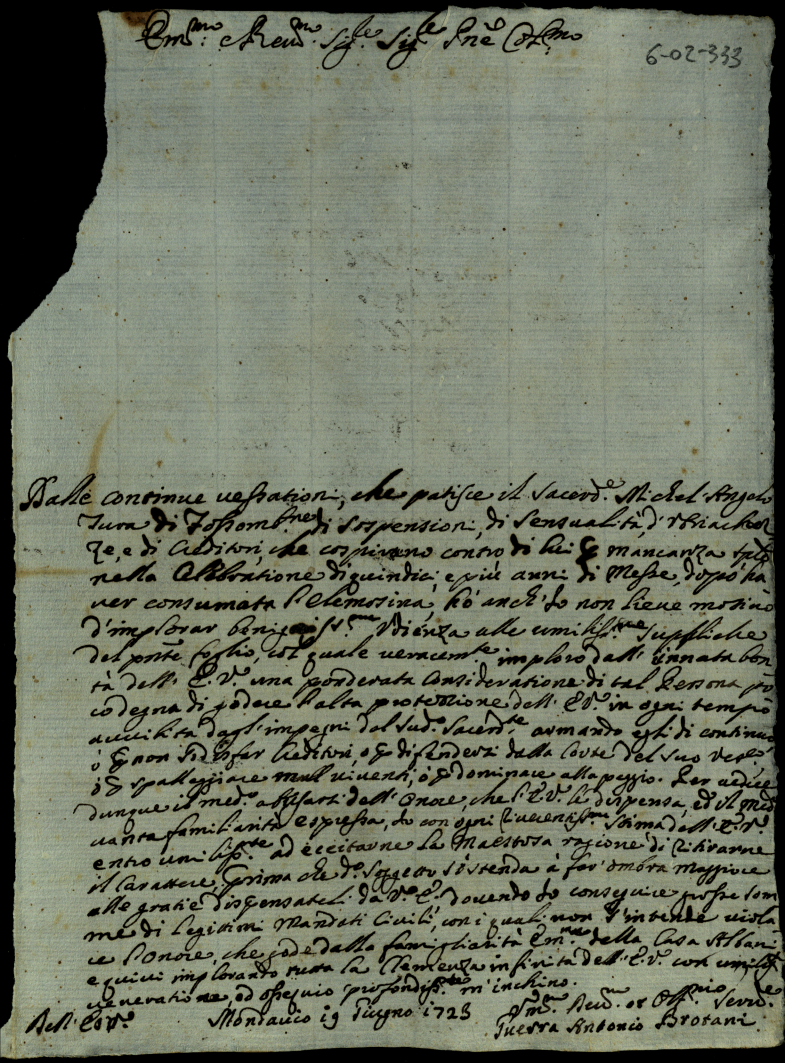 Em:mo e Reu:mo Sig.re Sig.re Pne Col:mo
6-02-333
Dalle continue vessationi, che patisce il Sacerd.e Michel' Angelo
Tura di Fossomb.ne di Sospensioni, di Sensualità, d'Vbriachez
ze, e di Creditori, che cospirano contro di lui p mancanza
nella Celebratione di quindici, e più anni di Messe, dopò ha
uer consumata l'elemosina, hò anch' Io non lieue motiuo
d'implorar benig:ma Vdienza alle umiliss:me Suppliche
del pnte foglio, col quale veracem.te imploro dall' innata bon
tà dell' E.V. una ponderata Consideratione di tal Persona po
co degna di godere l'alta protezione dell' E.V. in ogni tempo
auuilita dagl' impegni del Sud.o Sacerd.te, armando egli di continuo
ò p non Sodisfar Creditori, o p difendersi dalla Corte del Suo Vesc.o
ò p spalleggiare mal viuenti, ò p dominare alla peggio. Per
dunque il med.o abusarsi dell' Onore, che l'E.V. le dispensa, ed il
uanta familiarità espressa, Io con ogni riuerentiss:ma Stima dell' E.V.
entro umiliss.te ad eccitarne la Maestosa ragione di ritirarne
il Carattere, prima che d.o Soggetto s'estenda à far' ombra maggiore
alle gratie dispensateli da V.E. douendo Io conseguire grosse som
me di legittimi Mandati Ciuili, con i quali non s'intende viola
re l'onore, che gode dalla famigliarità Em:ma della Casa Albani
e quiui implorando tutta la Clemenza infinita dell' E.V. con umiliss.
veneratione, ed ossequio profondiss.te m'inchino.
Dell' E.V. Mondauio 19 Giugno 1723 Vm:mo Deu:mo et Oss.mo Seru.e
Guerra Antonio Brotani